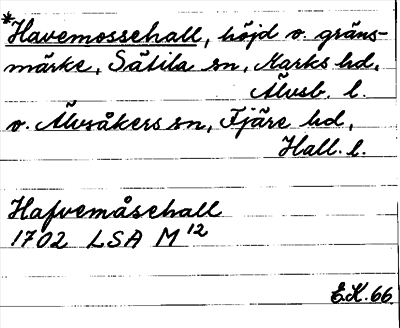 *Havemossehall, höjd o. gräns-
märke, Sätila sn, Marks hd,
Älvsb. l.
o. Älvsåkers sn, Fjäre hd,
Hall. l.
Hafvemåsehall
1702 LSA M 12
E.K. 66.